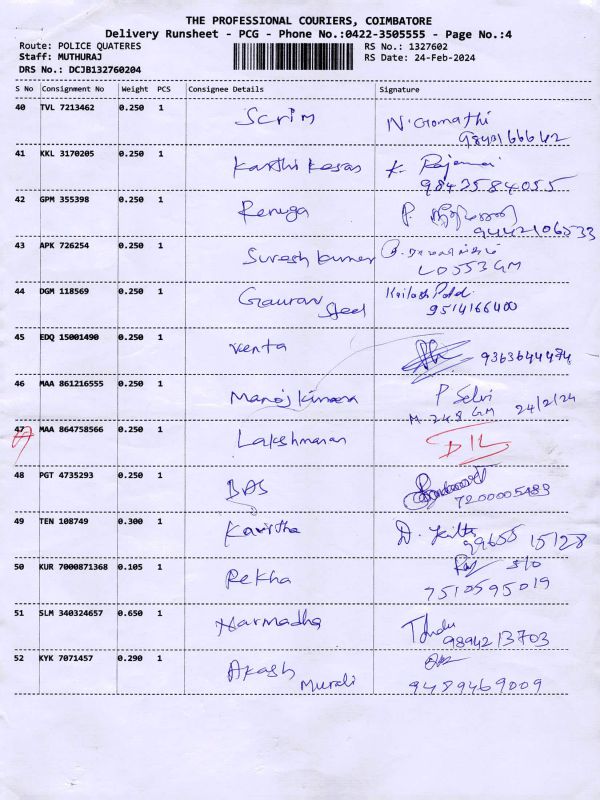 THE PROFESSIONAL COURIERS, COIMBATORE
Delivery Runsheet - PCG - Phone No.:0422-3505555 - Page No.:4
Route: POLICE QUATERES RS No.: 1327602
Staff: MUTHURAJ RS Date: 24-Feb-2024
DRS No.: DCJB132760204
S No Consignment No Weight PCS Consignee Details Signature
40 TVL 7213462 0.250 1 Scrim N. Gomathi
9843166642
41 KKL 3170205 0.250 1 Karthi K. Rajeswari
9842584055
42 GPM 355398 0.250 1 Renuga P.
9442106533
43 APK 726254 0.250 1 Suresh kumar
LO553GM
44 DGM 118569 0.250 1 Gaurav Steel Kailash
9514166400
45 EDQ 15001490 0.250 1 Venta 9363644474
46 MAA 861216555 0.250 1 Manoj kumar P Selvi
M 248 GM 24/2/24
47 MAA 864758566 0.250 1 Lakshmanan D/L
48 PGT 4735293 0.250 1 BAS
7200005489
49 TEN 108749 0.300 1 Kavitha D.
99655 15128
50 KUR 7000871368 0.105 1 Rekha S/O
7510595019
51 SLM 340324657 0.650 1 Narmadha
9894213703
52 KYK 7071457 0.290 1 Akash
Murali 9489469009